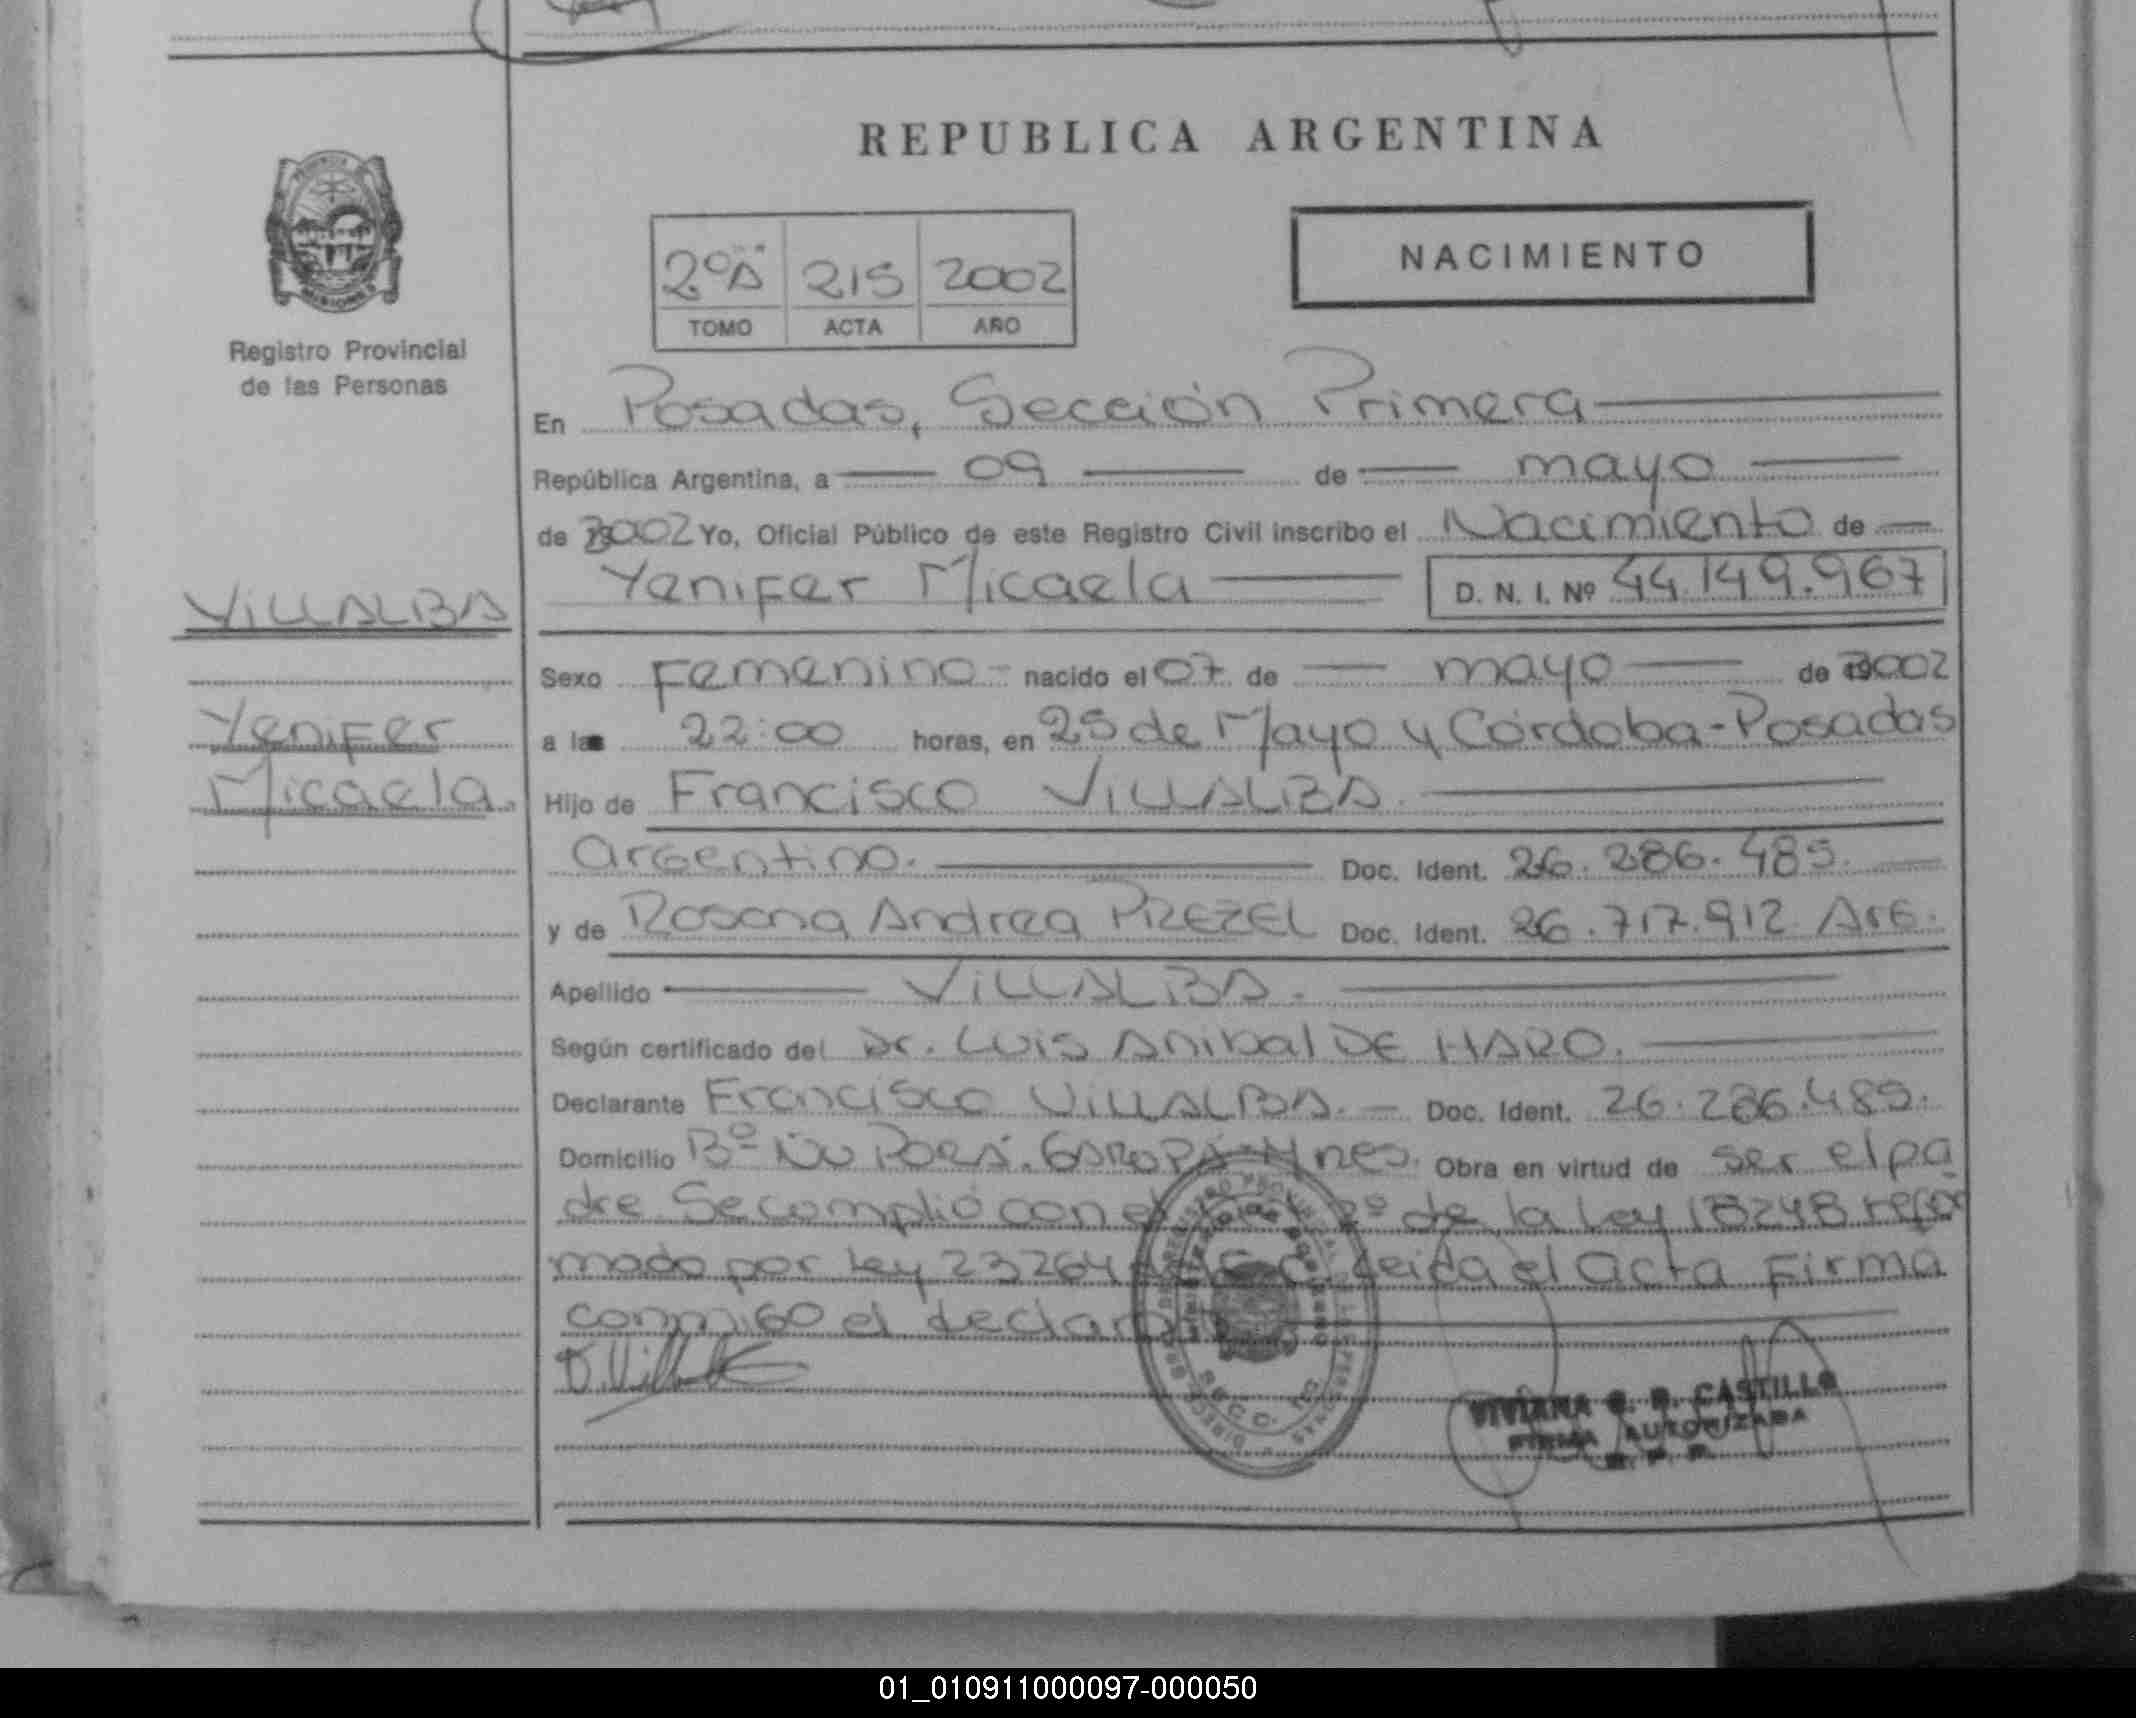 REPUBLICA ARGENTINA
NACIMIENTO
2º "A" 215 2002
TOMO ACTA AÑO
Registro Provincial
de las Personas
En Posadas, Sección Primera
República Argentina, a 09 de mayo
de 2002 Yo, Oficial Público de este Registro Civil inscribo el Nacimiento de
Yenifer Micaela D. N. I. Nº 44.149.967
VILLALBA
Yenifer
Micaela.
Sexo Femenino - nacido el 07 de mayo de 2002
a las 22:00 horas, en 25 de Mayo y Córdoba - Posadas
Hijo de Francisco VILLALBA.
Argentino. Doc. Ident. 26.286.485.
y de Rosana Andrea PREZEL Doc. Ident. 26.717.912 Arg.
Apellido VILLALBA.
Según certificado del Dr. Luis Anibal DE HARO.
Declarante Francisco VILLALBA. - Doc. Ident. 26.286.485.
Domicilio Bº Ñu Porá. Garupá - Mnes. Obra en virtud de ser el pa
dre Se complió con el 2º de la Ley 18248 refor
mado por Ley 23264 Leida el acta Firma
conmigo el
VIVIANA CASTILLO
FIRMA AUTORIZADA
01_010911000097-000050